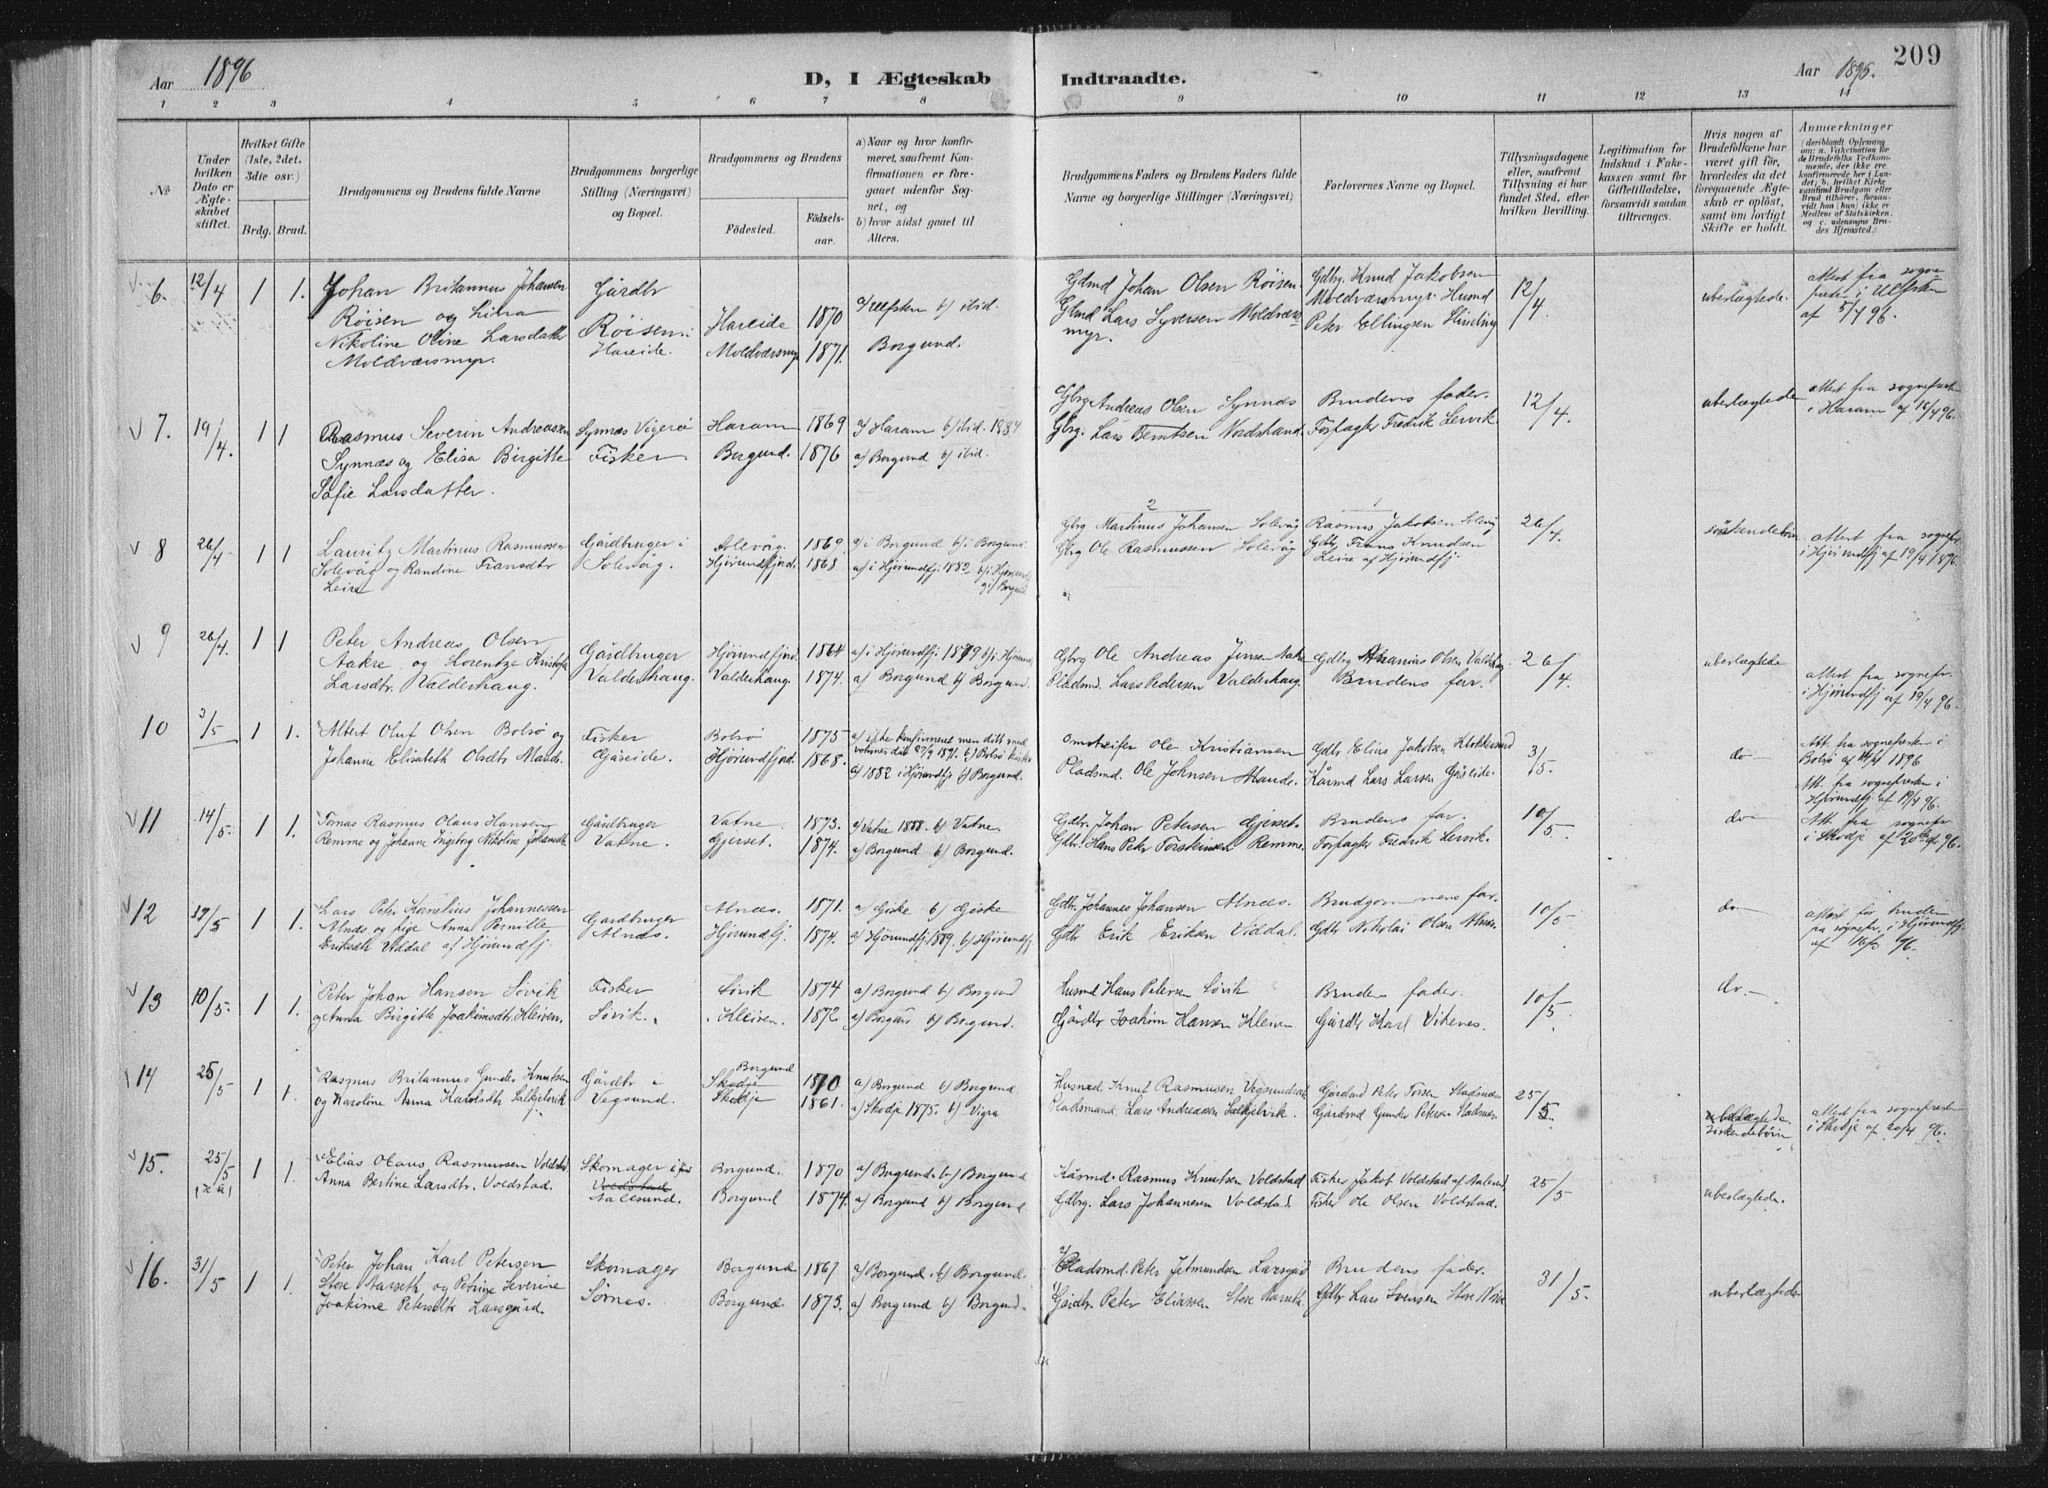 209
Aar 1896
D, I Ægteskab Indtraadte.
Aar 1896.
1 2 3 4 5 6 7 8 9 10 11 12 13 14
No
Under hvilken Dato er Ægteskabet stiftet.
Hvilket Gifte (1ste, 2det, 3die osv.)
Brdg. Brud.
Brudgommens og Brudens fulde Navne
Brudgommens borgerlige Stilling (Næringsvei) og Bopæl.
Brudgommens og Brudens
Födested. Födselsaar.
a) Naar og hvor konfirmeret, saafremt Konfirmationen er foregaaet udenför Sognet, og
b) hvor sidst gaaet til Alters.
Brudgommens Faders og Brudens Faders fulde Navne og borgerlige Stillinger (Næringsvei)
Forlovernes Navne og Bopæl.
Tillysningsdagene eller, saafremt Tillysning ei har fundet Sted, efter hvilken Bevilling.
Legitimation for Indskud i Enkekassen samt for Giftetilladelse, forsaavidt saadan tiltrænges.
Hvis nogen af Brudefolkene har været gift för, hvorledes da det foregaaende Ægteskab er oplöst, samt om lovligt Skifte er holdt.
Anmærkninger
6. 12/4 1 1.
Johan Britannus Johansen
Röisen og Lina
Nikoline Oline Larsdatter
Moldværsmyr.
Gårdbr
Röisen i
Hareide.
Hareide 1870
Moldværsmyr 1871.
a/ Ulfsten b/ ibid.
Borgund.
Gbmd Johan Olsen Röisen.
Gbmd Lars Syversen Moldværsmyr.
Gdbg. Knud Jakobsen
Moldværsmyr. Husmd
Peter Ellingsen
12/4
ubeslægtede.
attest fra sognepresten i Ulfsten
af 5/4 96.
7. 19/4. 1 1
Rasmus Severin Andreassen
Synnæs og Elisa Birgitte
Sofie Larsdatter.
Synnæs Vigerö
Fisker
Haram 1869
Borgund. 1876
a/ Haram b/ ibid. 1884
a/ Borgund b/ ibid.
Gbrg Andreas Olsen Synnæs
Gbrg. Lars Berntsen Nordstrand.
Brudens fader.
Forpagter Fredrik Lervik.
12/4.
ubeslægtede
attest fra sognepresten
i Haram af 12/4 96.
8 26/4 1 1
Lauritz Martinus Rasmussen
Solevåg og Randine Fransdtr
Leira
Gårdbruger i
Solevåg.
Solevåg. 1869
Hjörundfjord. 1868
a/ i Borgund b/ i Borgund
a/ i Hjörundfj 1882 b/ i Hjörundfj
og i Borgund
2
Gbrg Martinus Johansen Solevåg
Gbrg Ole Rasmussen Solevåg
1
Rasmus Jakobsen Solevåg
Gdbr. Frans Knudsen
Leira af Hjörundfj
26/4.
söskendebörn
attest fra sognepr.
i Hjörundfj af 19/4 1896.
9 26/4. 1 1
Peter Andreas Olsen
Aakre og Lorentze Kristofa
Larsdtr. Valderhaug.
Gårdbruger
Valderhaug.
Hjörundfjord. 1864
Valderhaug. 1874.
a/ i Hjörundfj. 1879 b/ i Hjörund
a/ Borgund b/ Borgund.
Gbrg Ole Andreas Jensen Aakre
Pladsmd. Lars Pedersen Valderhaug.
Gdbrg Ananias Olsen Valderhaug
Brudens far.
26/4.
ubeslægtede
attest fra sognepr.
i Hjörundfj af 19/4 96.
10 3/5 1 1.
Albert Oluf Olsen Bolsö og
Johanne Elisabeth Olsdtr Maude.
Fisker
Gåseide.
Bolsö 1875
Hjörundfjord. 1868.
a/ 1882 i Hjörundfj b/ Borgund.
Omstreifer Ole Kristiansen
Pladsmd. Ole Johnsen Maude.
Gdbr Elias Jakobsen Klokkersund
Kårmd Lars Larsen Gåseide.
3/5.
do
Att. fra sognepresten i
Bolsö af 14/4 1896
Att. fra sognepresten i
Hjörundfj. af 19/4 96.
11 14/5. 1 1.
Tomas Rasmus Olaus Hansen
Remme og Johanne Ingeborg Nikoline Johansdtr.
Gårdbruger
Vatne.
Vatne 1873.
Gjerset. 1874.
a/ Vatne 1888. b/ Vatne.
a/ Borgund b/ Borgund.
Gdbr. Johan Petersen Gjerset.
Gdbr. Hans Peter Torsteinsen Remme.
Brudens far.
Forpagter Fredrik Lervik.
10/5.
do
Att. fra sognepr
i Skodje af 20de apr 96.
12 17/5 1 1.
Lars Peter Kornelius Johannessen
Alnæs og pige Anna Pernille
Eriksdtr Viddal af Hjörundfj.
Gårdbruger
Alnæs.
Alnæs. 1871.
Hjörundfj. 1874.
a/ Giske b/ Giske
a/ Hjörundfj. 1889 b/ Hjörundfj.
Gdbr. Johannes Johansen Alnæs.
Gdbr Erik Eriksen Viddal.
Brudgommens far.
Gdbr Nikolai Olsen Alnæs.
10/5.
do
attest for bruden
fra sognepr. i Hjörundfj
af 16/5 96.
13 10/5. 1 1.
Peter Johan Hansen Lövik
og Anna Birgitte Joakimsdtr. Kleiven.
Fisker
Lövik.
Lövik 1874
Kleiven. 1872.
a/ Borgund b/ Borgund
a/ Borgund b/ Borgund.
Husmd Hans Petersen Lövik
Gårdbr Joakim Hansen Kleiven
Brudens fader.
Gårdbr Karl Vikenes.
10/5.
do.
14 25/5 1 1.
Rasmus Britannus Gunder Knutsen
og Karoline Anna Karlsdtr Selkjelvik
Gårdbr i
Vegsund.
Borgund
Skodje 1870
Skodje 1861.
a/ Borgund b/ Borgund
a/ Skodje 1875. b/ Vigra
Husmd Knut Rasmusen Vegsundvik
Pladsmand. Lars Andreassen Selkjelvik.
Gårdmd Peter Torsen Stadsnæs
Gårdmd Gunder Petersen Stadsnæs
25/5.
ubeslægtede
söskendebörn
attest fra sognepresten
i Skodje af 20/4 96.
15. 25/5 1 1.
Elias Olaus Rasmussen Voldstad
Anna Bertine Larsdtr. Voldstad.
Skomager i
Voldstad
Aalesund.
Borgund. 1870
Borgund 1874.
a/ Borgund. b/ Borgund
a/ Borgund b/ Borgund
Kårmd. Rasmus Knutsen Voldstad
Gdbrg. Lars Johannesen Voldstad
Fisker Jakob Voldstad af Aalesund
Fisker Ole Olsen Voldstad.
25/5
ubeslægtede.
16. 31/5 1 1.
Peter Johan Karl Petersen
Store Aarseth og Petrine Severine
Joakime Petersdtr Larsgård.
Skomager
Sörnes.
Borgund 1867
Borgund. 1873.
a/ Borgund. b/ Borgund.
a/ Borgund b/ Borgund.
Pladsmd. Peter Jetmundsen Larsgård
Gårdbr. Peter Eliassen Store Aarseth
Brudens fader.
Gdbr Lars Svensen Store
31/5.
ubeslægtede